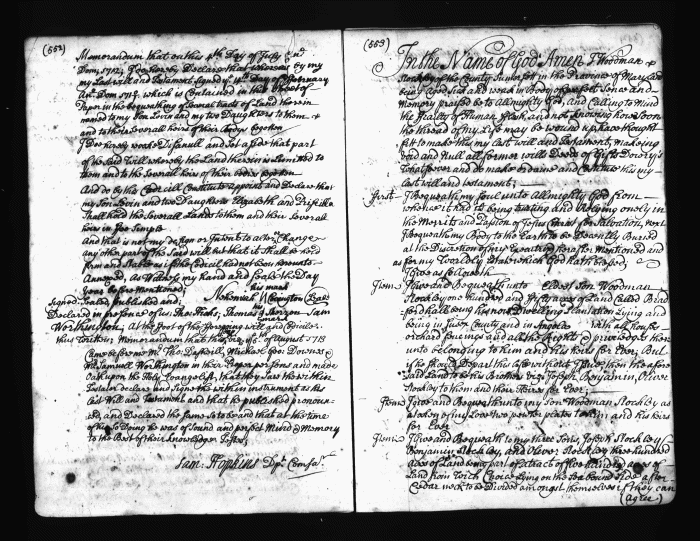 (552)
Memorandum that on this 4th Day of July
Dom. 1712 I do hereby Declare that whereas by my
my Last will and Testament signed ye 14th Day of February
An: Dom 171 which is Contained in that Sheet of
Paper in the bequeathing of Severall tracts of Land therein
menied to my Son Levin and my two Daughters to them &
and to the Severall heires of their bodys begotten
I Doe hereby revoke Disanull and Set aside that part
of the said will whereby the Land therein is Limitted to
them and to the Severall heires of their bodies begotten
And do by this Codicill Constitute appoint and Declare that
my Son Levin and two Daughters Elizabeth and Priscilla
Shall hold the Severall Lands to them and their Severall
heires in Fee Simple
And that is not my design or Intent to alter or Change
any other part of the said will but that it Shall be
firm and as if the Codicill had not been
Annexed, As Witness my hand and Seale the Day
Year before Mentioned his mark
Signed Sealed published and Nehemiah Covington Seal
Declared in presence of us Tho: Hicks, Thomas Sam
Worthington, At the foot of the foregoing will and Codicile
thus Written Memorandum that this of August 1713
Came before me Mr. Tho: Dashiell, Michael
Wm Samuell Worthington in their proper persons and made
Oath upon the Holy Evangelist, that they saw the within
Testator declare and Signe the within instrument as his
Last Will and Testament and that he published pronoun
ced, and Declared the Same So to be and that at the time
of his So Doing he was of Sound and perfect Mind & Memory
to the Best of their knowledge Testes
Sam. Hopkins Dpt. Comsa.
(553)
In the Name of God Amen I Woodman
Stockley of the County Sumersett in the Province of Maryland
being Aged Sick and weak in Body of perfect Sence and
Memory praised be to Allmighty God, and Calling to Mind
the frailty of Human flesh, and not knowing how Soon
the thread of My Life may be wound up have thought
fitt to make this my Last will and Testament, making
void and Null all former wills Deeds of Gifts Dowry's
Whatsoever and do make ordaine and Constitute this my
Last will and testament;
first I Bequeath my Soul unto Allmighty God from
whence it had its being trusting and Relying onely in
the Merrits and Passion of Jesus Christ for Salvation, next
I Bequeath my Body to the Earth to be Decently Buried
at the Discretion of my Executors hereafter Mentioned and
as for my Worldly Estate which God hath
I give as followeth
Item I give and Bequeath unto Eldest Son Woodman
Stockley one hundred and fifty acres of Land Called
ford hall being his now Dwelling Plantation Lying and
being in Susex County and in Angola with all houses
orchard fencings and all the Rights & priviledges there
unto belonging to him and his heirs for Ever But
if he Should Depart this Life without Issue then the afore
said Land to be his Brothers Joseph Benjamin Oliver
Stockley to them and their Heires for Ever
Item I give and Bequeath unto my Son Woodman Stockley as
a token of my Love two pewter plates to him and his heirs
for Ever
Item I give and Bequeath to my three Sons Joseph Stockley
Benjamin Stockley, and Oliver Stockley three hundred
acres of Land being part of a tract of five hundred acres of
Land Lying on the Sea bound Side after
Cedar neck to be Divided amongst themselves if they can
(agree)